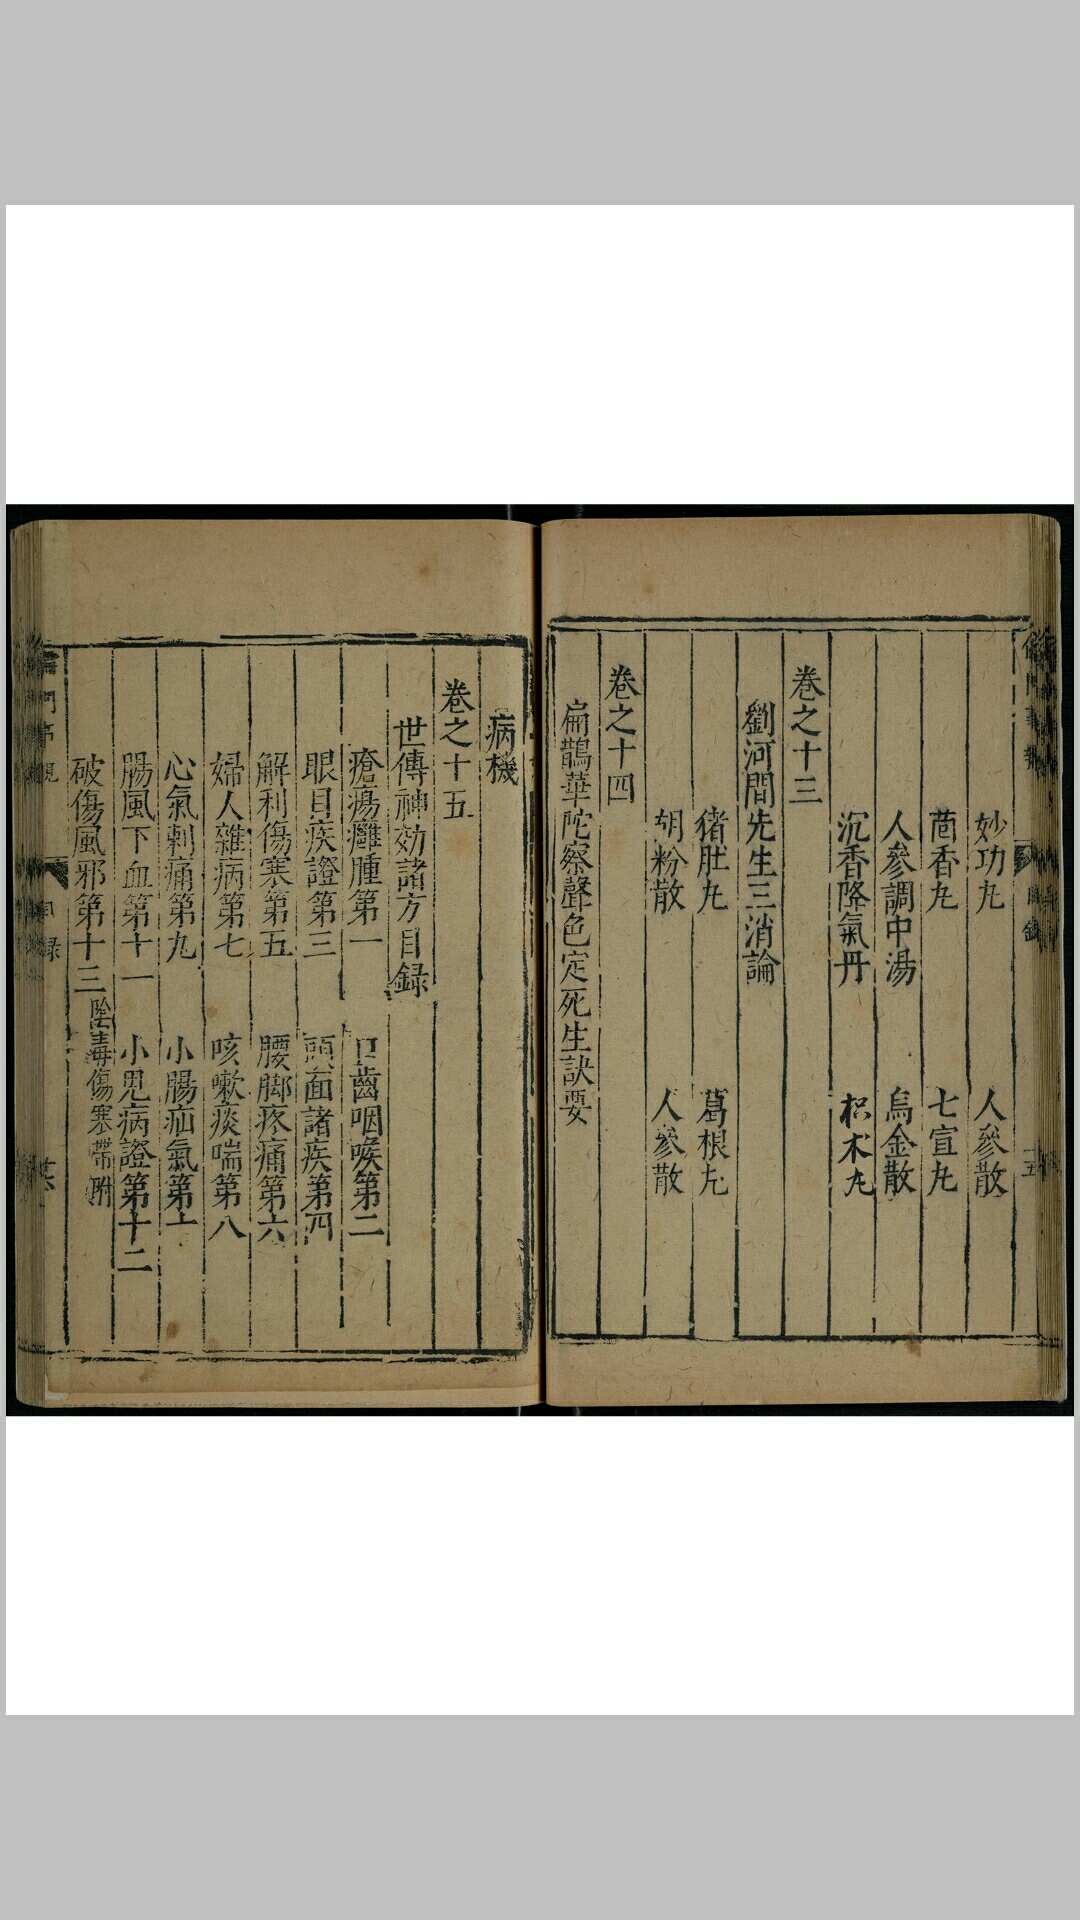 妙功丸 人參散
茴香丸 七宣丸
人參調中湯 烏金散
沉香降氣丹 枳木丸
卷之十三
劉河間先生三消論
猪肚丸 葛根丸
胡粉散 人參散
卷之十四
扁鵲華陀察聲色定死生訣要
病機
卷之十五
世傳神効諸方目録
瘡瘍癰腫第一 口齒咽喉第二
眼目疾證第三 頭面諸疾第四
解利傷寒第五 腰脚疼痛第六
婦人雜病第七 咳嗽痰喘第八
心氣刺痛第九 小腸疝氣第十
腸風下血第十一 小兒病證第十二
破傷風邪第十三 陰毒傷寒帶附
目録